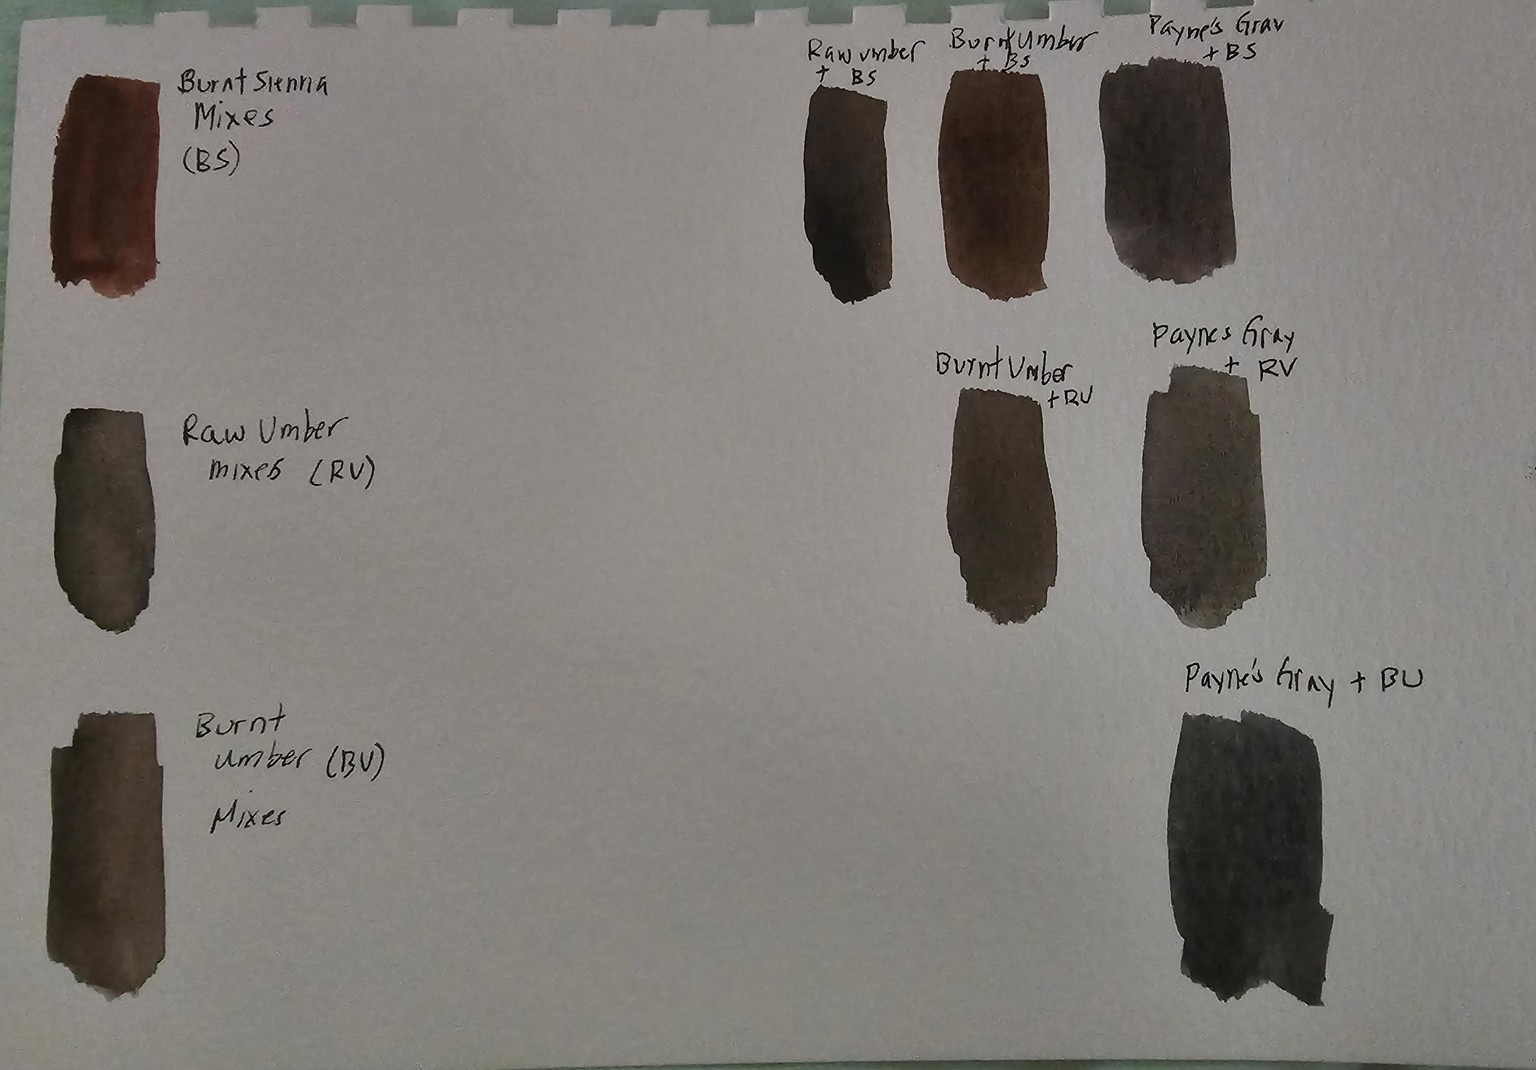 Burnt Sienna
Mixes
(BS)
Raw umber
+ BS
Burnt Umber
+ BS
Payne's Gray
+ BS
Raw Umber
mixes (RU)
Burnt Umber
+ RU
Paynes Gray
+ RU
Burnt
umber (BU)
Mixes
Payne's Gray + BU